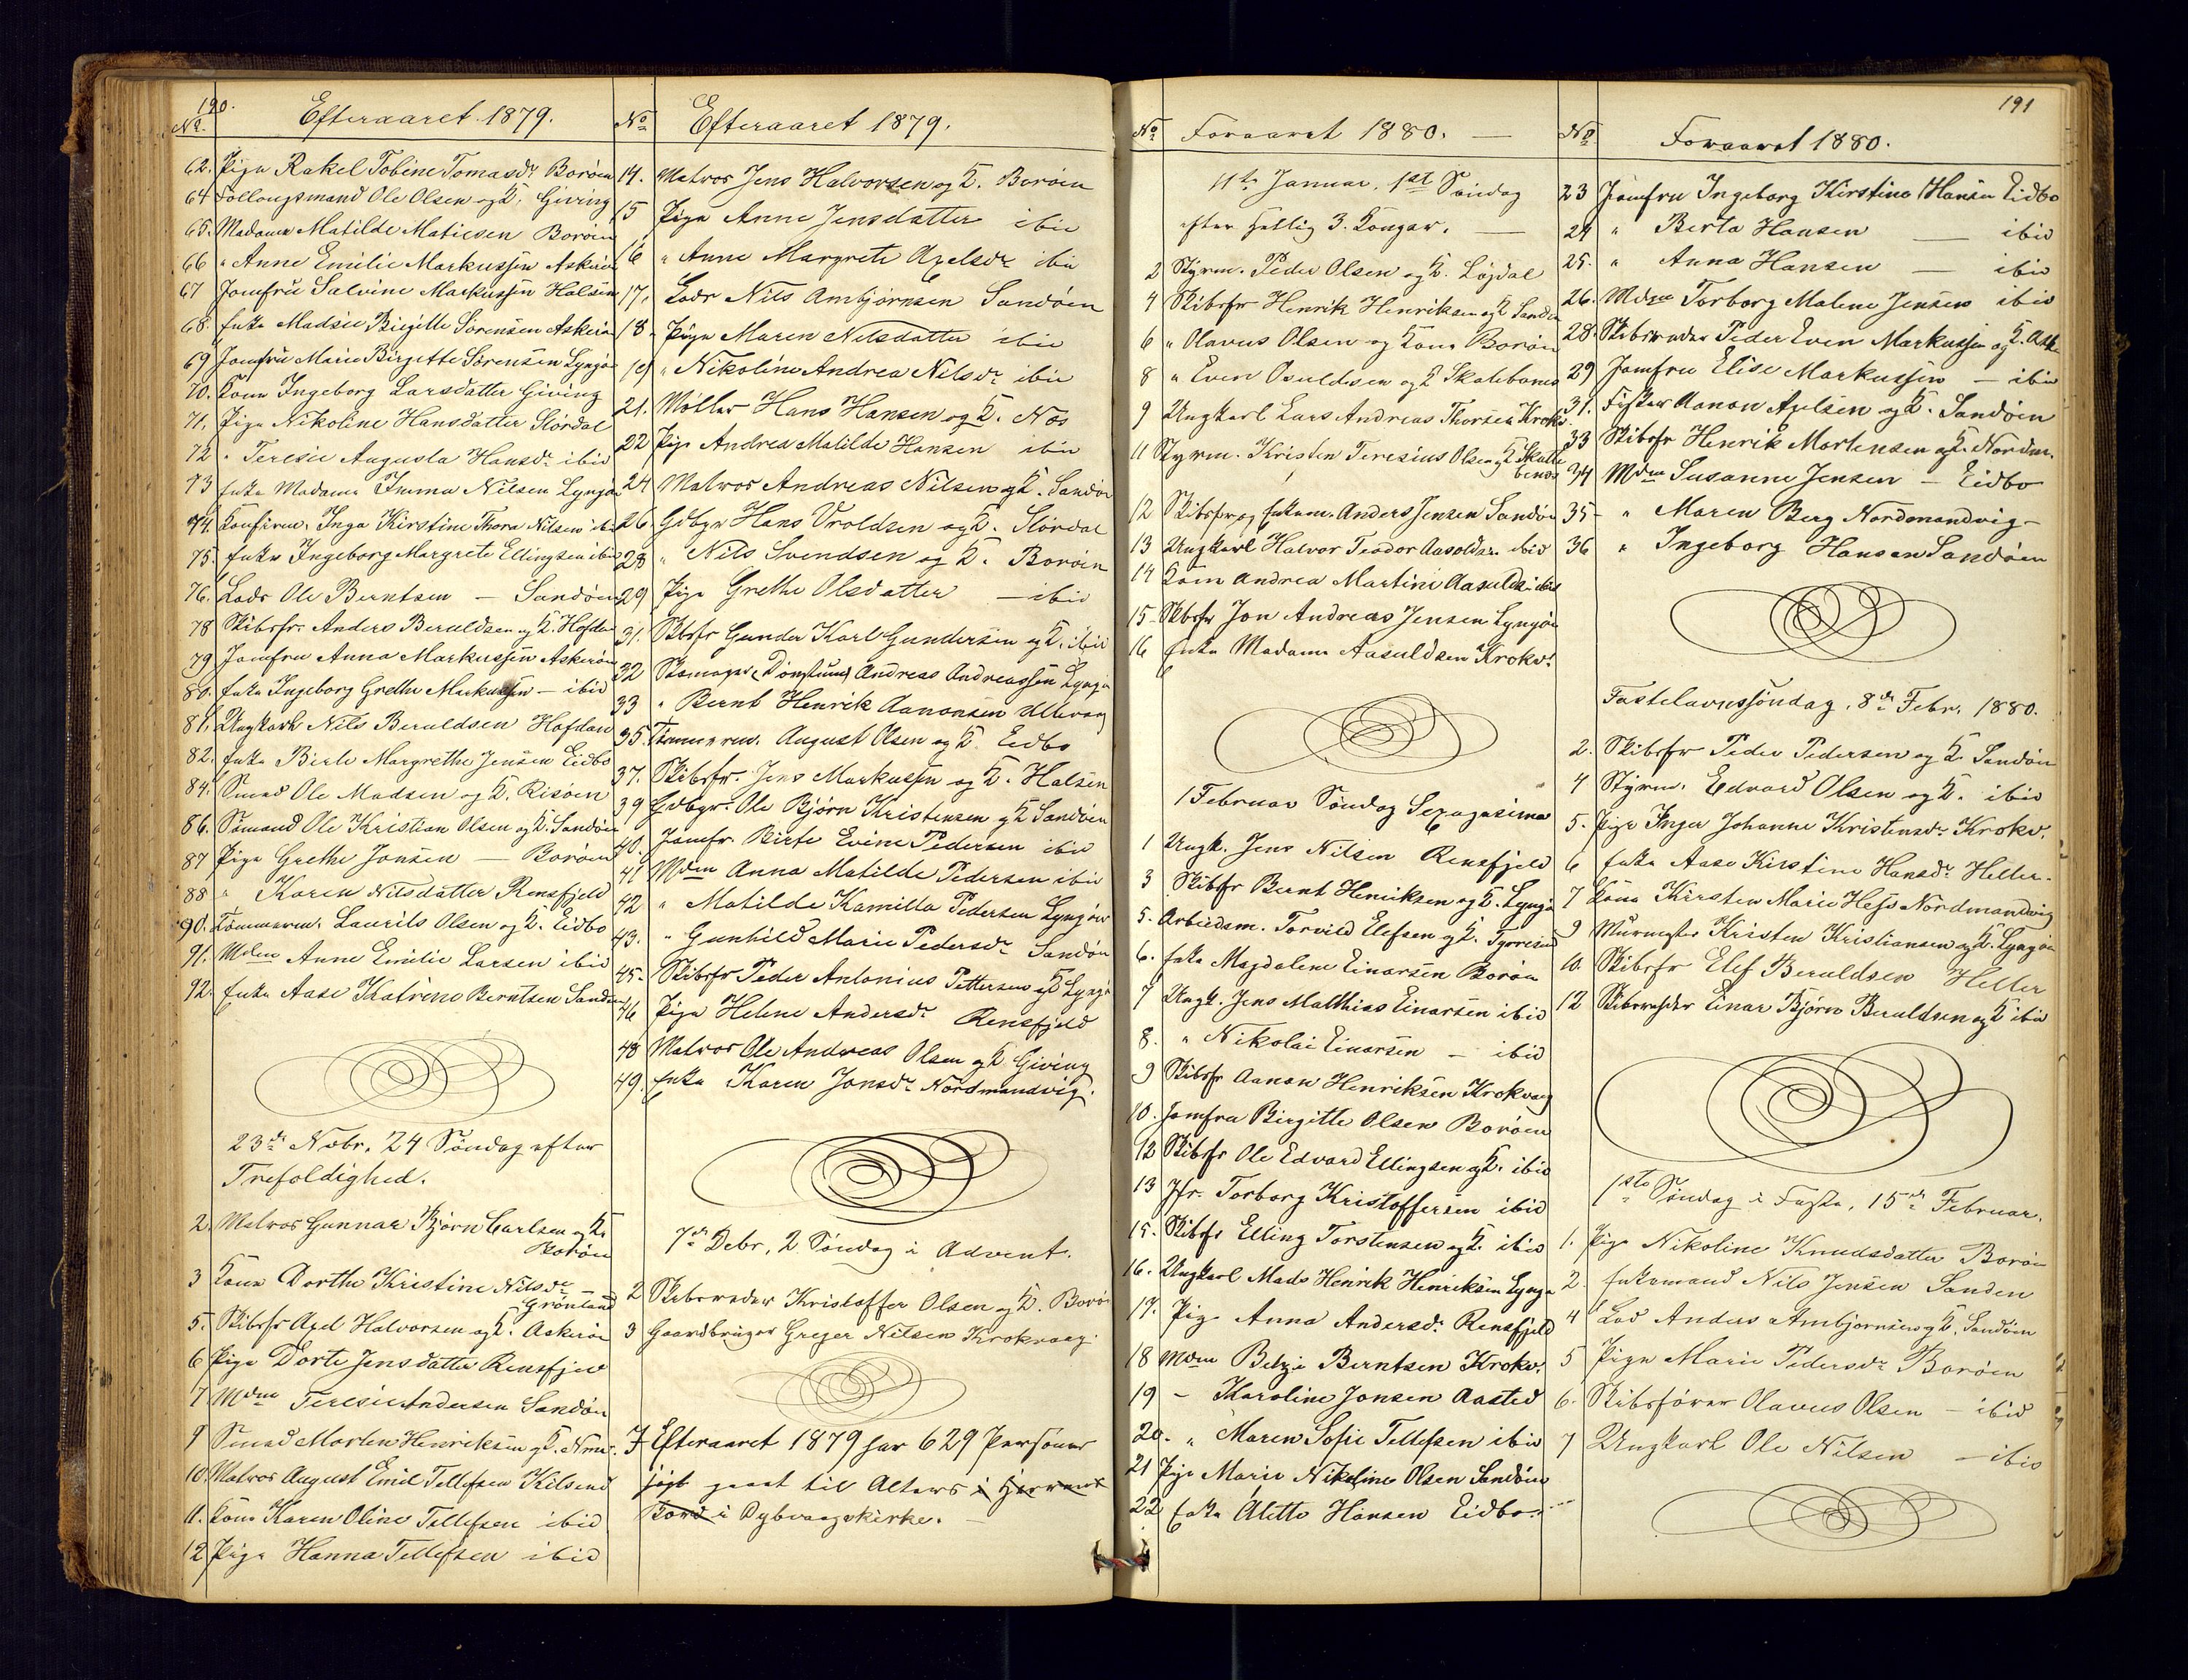 190.
No. Efteraaret 1879.
62. Pige Rakel Tobine Tomasdr Borøen
64 Føllougsmand Ole Olsen og K. Giving
65. Madame Matilde Matiesen Borøen
66 " Anne Emilie Markussen Askerøen
67 Jomfru Salvine Markussen Halsen
68. Enke Madsie Birgitte Sørensen Askerøen
69 Jomfru Marie Birgette Sørensen Lyngør
70. Kone Ingeborg Larsdatter Giving
71. Pige Nikoline Hansdatter Størdal
72 " Teresie Augusta Hansdr ibid
73 Enke Madame Imma Nilsen Lyngør
74. Konfirm. Inga Kirstine Thora Nilsen ibid
75. Enke Ingeborg Margrete Ellingsen ibid
76. Lods Ole Berntsen — Sandøen
78 Skibsfr. Anders Beruldsen og K. Hofdan
79 Jomfru Anna Markussen Askerøen
80. Enke Ingeborg Grethe Markussen — ibid
81. Ungkarl Nils Beruldsen Hofdan
82. Enke Birte Margrethe Jensen Eidbo
84. Smed Ole Madsen og K. Risøen
86. Sømand Ole Kristian Olsen og K. Sandøen
87 Pige Grethe Jonsen — Borøen
88 " Karen Nilsdatter Rensfjeld
90. Tømmerm. Laurits Olsen og K. Eidbo
91. Mdm Anne Emilie Larsen ibid
92. Enke Aase Katrine Berntsen Sandøen
23de Novbr. 24 Søndag efter
Trefoldighed.
2. Matros Gunnar Bjørn Carlsen og K.
Borøen
3 Kone Dorthe Kristine Nilsdr —
Grønland
5. Skibsfr Axel Halvorsen og K. Askerøen
6 Pige Dorte Jensdatter Rensfjeld
7 Mdm Teresie Andersen Sandøen
9 Smed Morten Henriksen og K.
10. Matros August Emil Tellefsen Kilsund
11. Kone Karen Oline Tellefsen ibid
12 Pige Hanna Tellefsen ibid
No Efteraaret 1879.
14. Matros Jens Halvorsen og K. Borøen
15 Pige Anne Jensdatter ibid
16 " Anne Margrete Axelsdr ibid
17. Lods Nils Ambjørnsen Sandøen
18. Pige Maren Nilsdatter ibid
19 " Nikoline Andrea Nilsdr ibid
21. Møller Hans Hansen og K. Næs
22 Pige Andrea Matilde Hansen ibid
24 Matros Andreas Nilsen og K. Sandøen
26. Gdbgr Hans Vroldsen og K. Størdal
28 " Nils Svendsen og K. Borøen
29 Pige Grethe Olsdatter — ibid
31. Skbsfr Gunder Karl Gundersen og K. ibid
32 Skomager Andreas Andreassen Lyngør
33 " Bernt Henrik Aanonsen
35. Tømmerm. August Olsen og K. Eidbo
37. Skibsfr. Jens Markussen og K. Halsen
39 Gdbgr. Ole Bjørn Kristensen og K Sandøen
40. Jomfr. Birte Evine Pedersen ibid
41 Mdm Anna Matilde Pedersen ibid
42 " Matilde Kamilla Pedersen Lyngør
43. " Gunhild Marie Pedersdr Sandøen
45. Skibsfr Peder Antonius Pettersen og K Lyngør
46 Pige Helene Andersdr Rensfjeld
48 Matros Ole Andreas Olsen og K Giving
49. Enke Karen Jonsdr Nordmandvig.
7de Debr, 2. Søndag i Advent.
2 Skibsreder Kristoffer Olsen og K. Borøen
3 Gaardbruger Greger Nilsen Krokvaag.
I Efteraaret 1879 har 629 Personer
søgt gaaet til Alters i Herrens
Bord i Dybvaagskirke. —
No Foraaret 1880. —
11te Januar, 1st Søndag
efter Hellig 3. Konger. —
2 Styrm. Peder Olsen og K. Løjdal
4 Skibsfr Henrik Henriksen og K Sandøen
6 " Olavus Olsen og Kone Borøen
8 " Even Osuldsen og K
9 Ungkarl Lars Andreas Thorsen Krokv.
11 Styrm. Kristen Teresius Olsen og K
12 Skibsfr og Enkem. Anders Jensen Sandøen
13 Ungkarl Halvor Teodor Aasuldsen ibid
14 Kone Andrea Martine Aasulds. ibid
15 Skbsfr Jon Andreas Jensen Lyngør
16 Enke Madame Aasuldsen Krokv.
1 Februar Søndag Sexagesima
1 Ungk. Jens Nilsen Rensfjeld
3 Skibsfr Bernt Henriksen og K. Lyngør
5. Arbeidsm. Torvild Elefsen og K.
6. Enke Magdalene Einarsen Borøen
7 Ungk. Jens Matthias Einarsen ibid
8. " Nikolai Einarsen — ibid
9 Skibsfr Aanon Henriksen Krokvaag
10. Jomfru Birgitte Olsen Borøen
12 Skibsfr Ole Edvard Ellingsen og K. ibid
13 Jfr. Torborg Kristoffersen ibid
15. Skibsfr Elling Torstensen og K. ibid
16. Ungkarl Mads Henrik Henriksen Lyngør
17. Pige Anna Andersdr. Rensfjeld
18 Mdm Betzie Berntsen Krokv.
19 – Karoline Jonsen Aasted
20. " Maren Sofie Tellefsen ibid
21 Pige Marie Nikoline Olsen Sandøen
22 Enke Alette Hansen Eidbo
191
No Foraaret 1880.
23 Jomfru Ingeborg Kirstine Hansen Eidbo
24 " Berta Hansen — ibid
25. " Anna Hansen — ibid
26. Mdm Torborg Malene Jensen ibid
28. Skibsreder Peder Even Markussen og K. Ask
29 Jomfru Elise Markussen — ibid
31. Fisker Aanon Axelsen og K. Sandøen
33 Skibsfr Henrik Mortensen og K. Nordm.
34 Mdm Susanne Jensen — Eidbo
35 – " Maren Berg Nordmandvig –
36 " Ingeborg Hansen Sandøen
Fastelavnssøndag, 8de Febr. 1880.
2. Skibsfr Peder Pedersen og K. Sandøen
4 Styrm. Edvard Olsen og K. ibid
5. Pige Inger Johanne Kristensdr. Krokv.
6 Enke Aase Kirstine Hansdr Heller.
7 Kone Kirsten Marie Hess Nordmandvig
9 Murmester Kristen Kristiansen og K. Lyngør
10. Skibsfr Elef Beruldsen Heller
12 Skibsreder Einar Bjørn Beruldsen og K ibid
1ste Søndag i Faste, 15de Februar.
1. Pige Nikoline Knudsdatter Borøen
2. Enkemand Nils Jensen Sanden
4 Lod Anders Ambjørnsen og K. Sandøen
5 Pige Marie Pedersdr Borøen
6. Skibsfører Olavus Olsen — ibid
7 Ungkarl Ole Nilsen — ibid